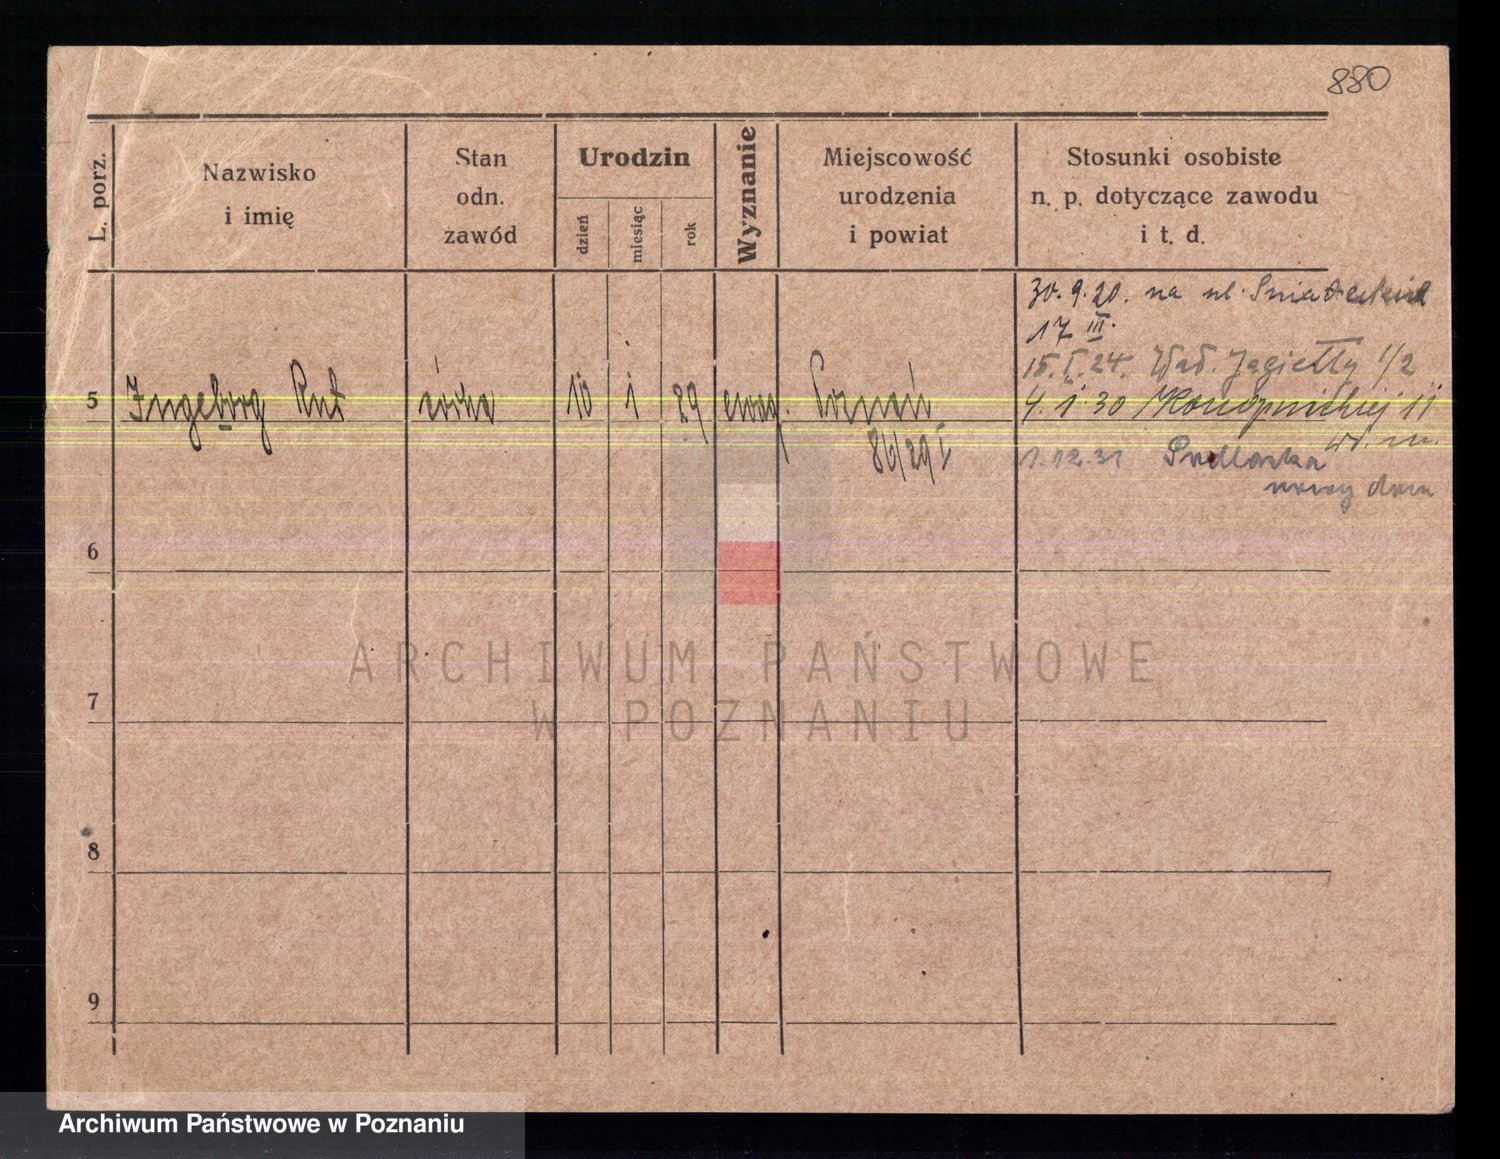 880
L. porz.
Nazwisko
i imię
Stan
odn.
zawód
Urodzin
dzień
miesiąc
rok
Wyznanie
Miejscowość
urodzenia
i powiat
Stosunki osobiste
n. p. dotyczące zawodu
i t. d.
30.9.20. na ul. Śniadeckich
17 III.
15.I.24. Wład. Jagiełły 1/2
5 Ingeborg Rut córka 10 1 29 ewag. Poznań 4.I.30 Konopnickiej 11
86/29
1.12.31 Podlaska
nowy dom
6
7
8
9
ARCHIWUM PAŃSTWOWE
W POZNANIU
Archiwum Państwowe w Poznaniu